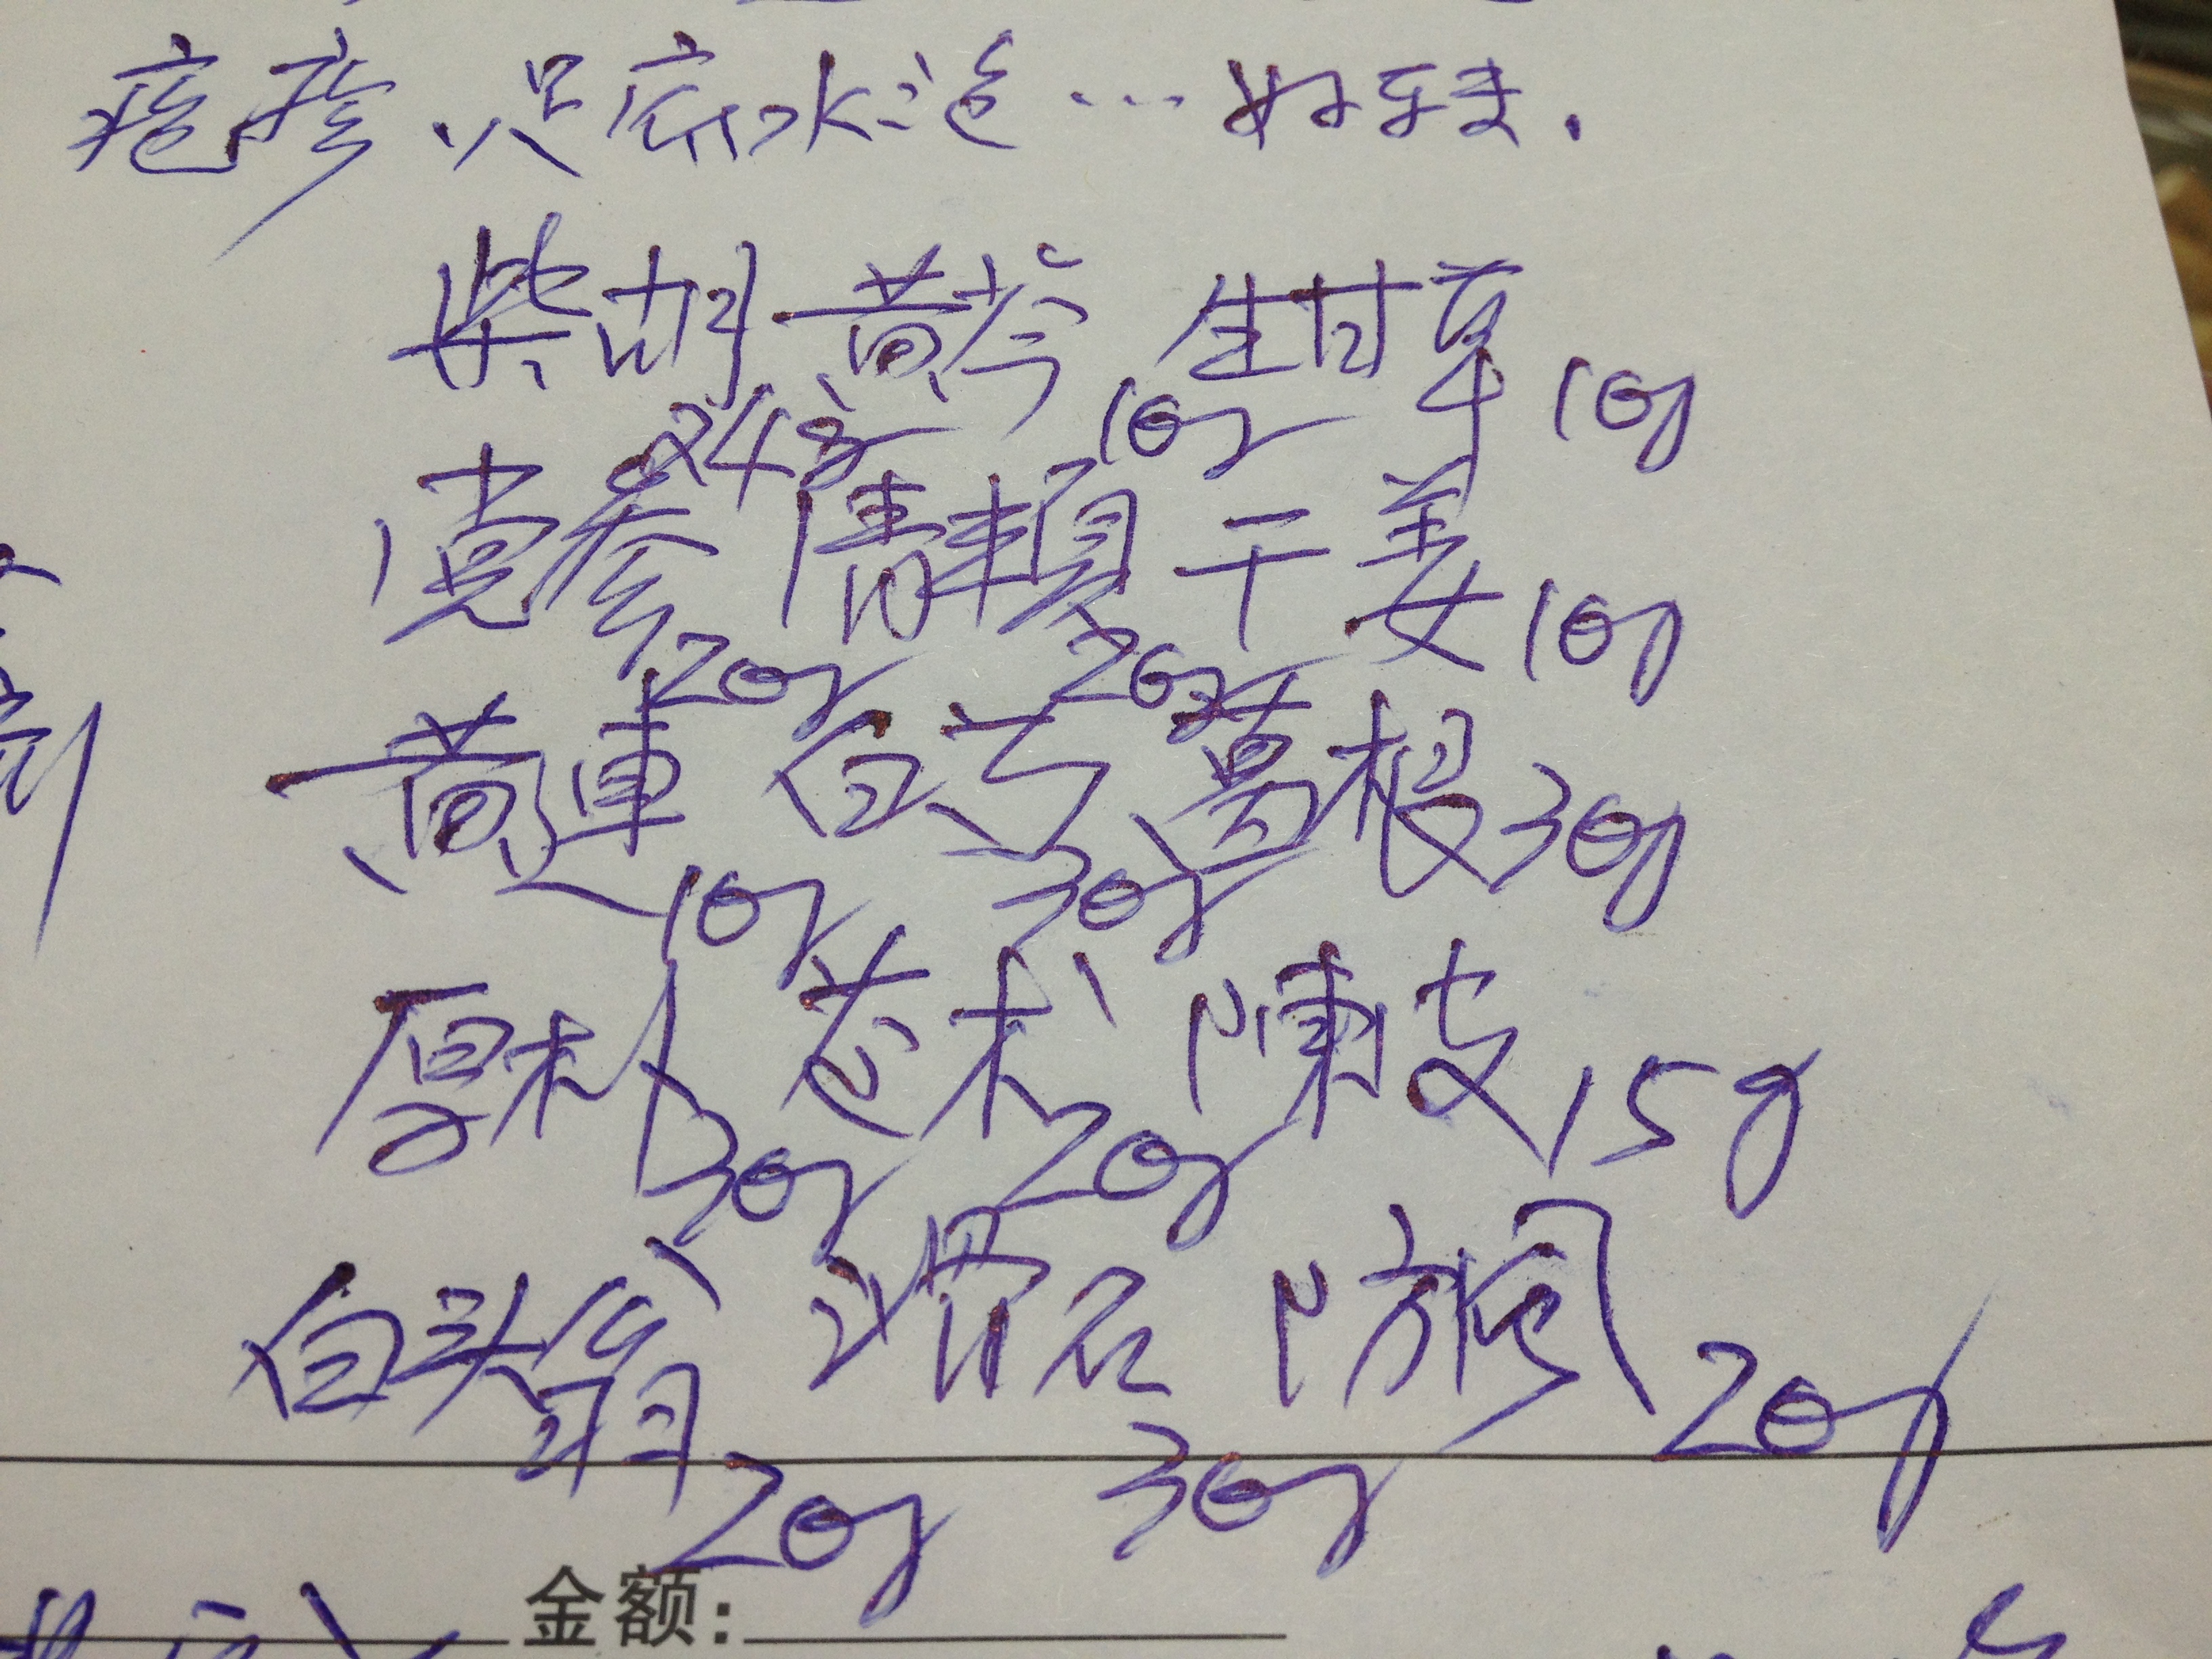 疱疹、足底水泡…好转.
柴胡24g 黄芩10g 生甘草10g
党参20g 清半夏20g 干姜10g
黄連10g 白芍30g 葛根30g
厚朴30g 苍术20g 陳皮15g
白头翁20g 滑石30g 防風20g
金额: